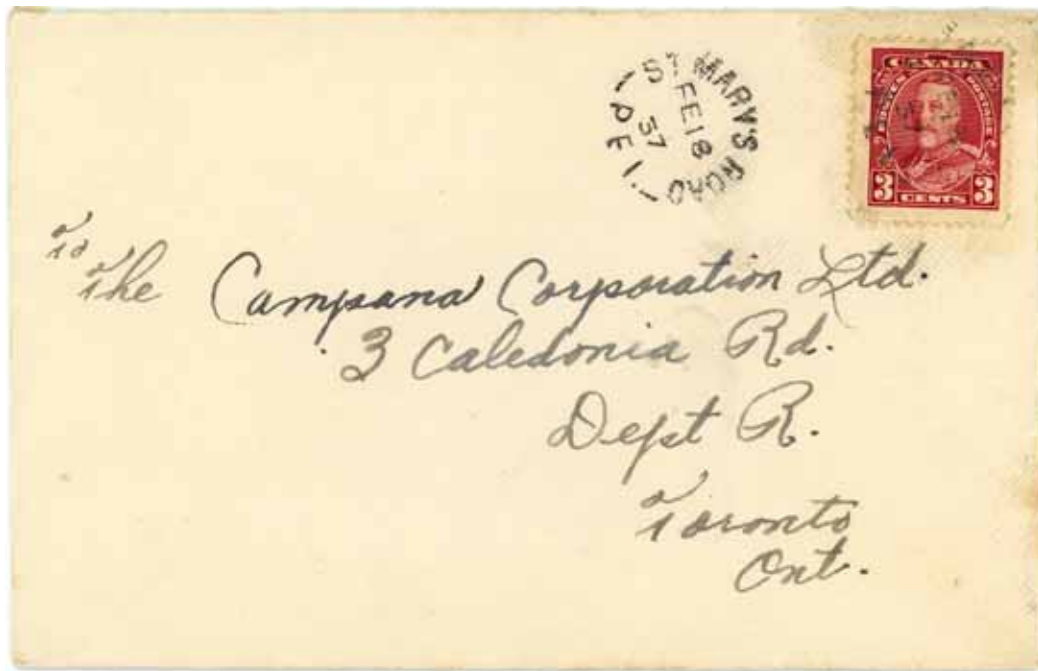 ST MARY'S ROAD
FE 18
37
P E I
CANADA
POSTES POSTAGE
3 CENTS 3
To
The Campana Corporation Ltd.
3 Caledonia Rd.
Dept R.
Toronto
Ont.